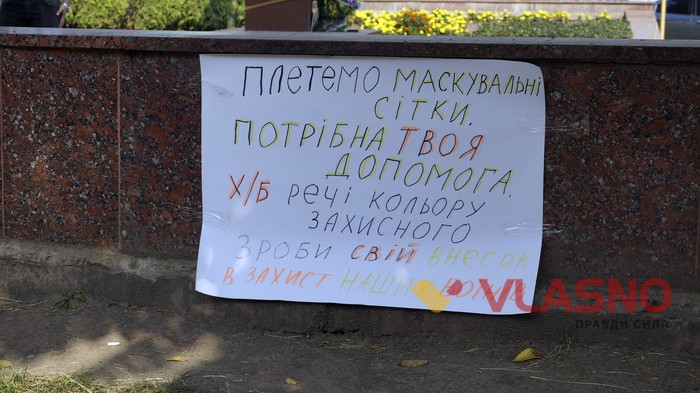 ПЛЕТЕМО МАСКУВАЛЬНІ
СІТКИ.
ПОТРІБНА ТВОЯ
ДОПОМОГА.
Х/Б РЕЧІ КОЛЬОРУ
ЗАХИСНОГО
ЗРОБИ СВІЙ ВНЕСОК
В ЗАХИСТ НАШИХ
VLASNO
ПРАВДИ СИЛА